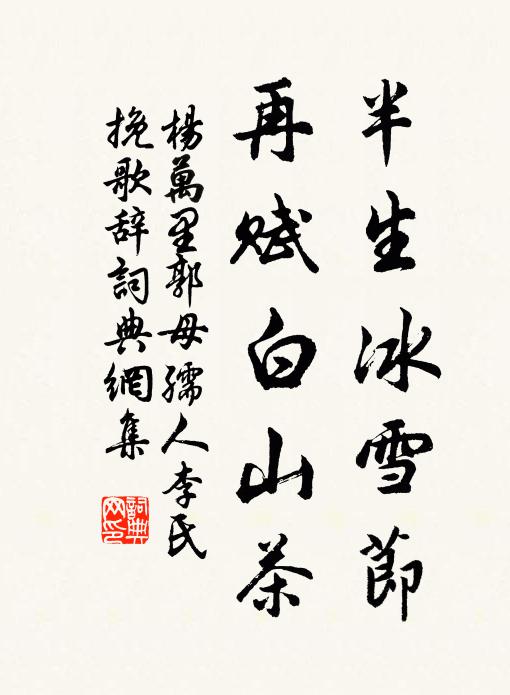 半生冰雪節
再賦白山茶
楊萬里郭母孺人李氏
挽歌辞詞典網集
詞典網印